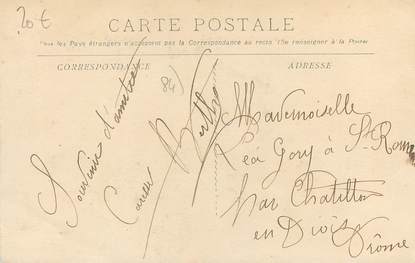 20 €
CARTE POSTALE
Tous les Pays étrangers n'acceptent pas la Correspondance au recto (Se renseigner à la Poste)
CORRESPONDANCE
ADRESSE
84)
Souvenir d'amitié
Berthe
Mademoiselle
Léa Gory à St Roman
par Chatillon
en Diois
Drôme